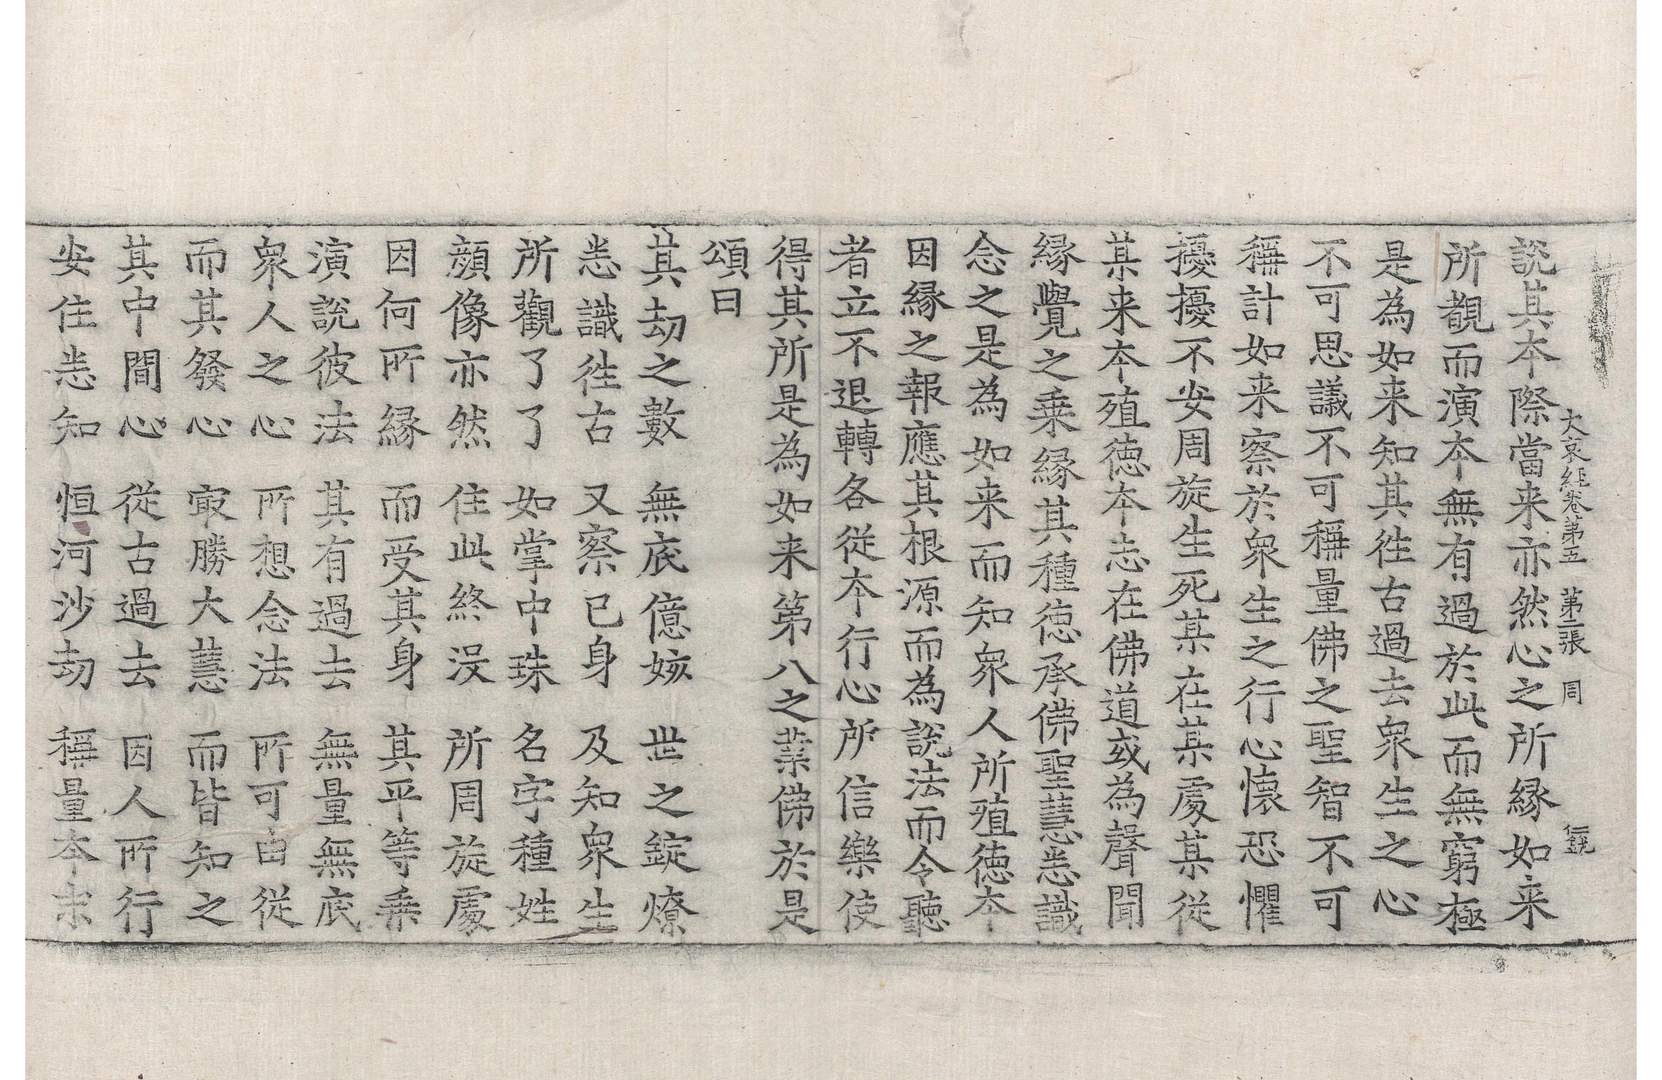 大哀經卷第五 第二張 周
說其本際當来亦然心之所緣如来
所覩而演本無有過於此而無窮極
是為如来知其徃古過去衆生之心
不可思議不可稱量佛之聖智不可
稱計如来察於衆生之行心懷恐懼
擾擾不安周旋生死某在某處某從
某来本殖德本志在佛道或為聲聞
緣覺之乗緣其種德承佛聖慧悉識
念之是為如来而知衆人所殖德本
因緣之報應其根源而為說法而令聽
者立不退轉各從本行心所信樂使
得其所是為如来第八之業佛於是
頌曰
其劫之數 無底億姟 世之錠燎
悉識徃古 又察已身 及知衆生
所觀了了 如掌中珠 名字種姓
顏像亦然 住此終没 所周旋處
因何所緣 而受其身 其平等乗
演說彼法 其有過去 無量無底
衆人之心 所想念法 所可由從
而其發心 最勝大慧 而皆知之
其中間心 從古過去 因人所行
安住悉知 恒河沙劫 稱量本末